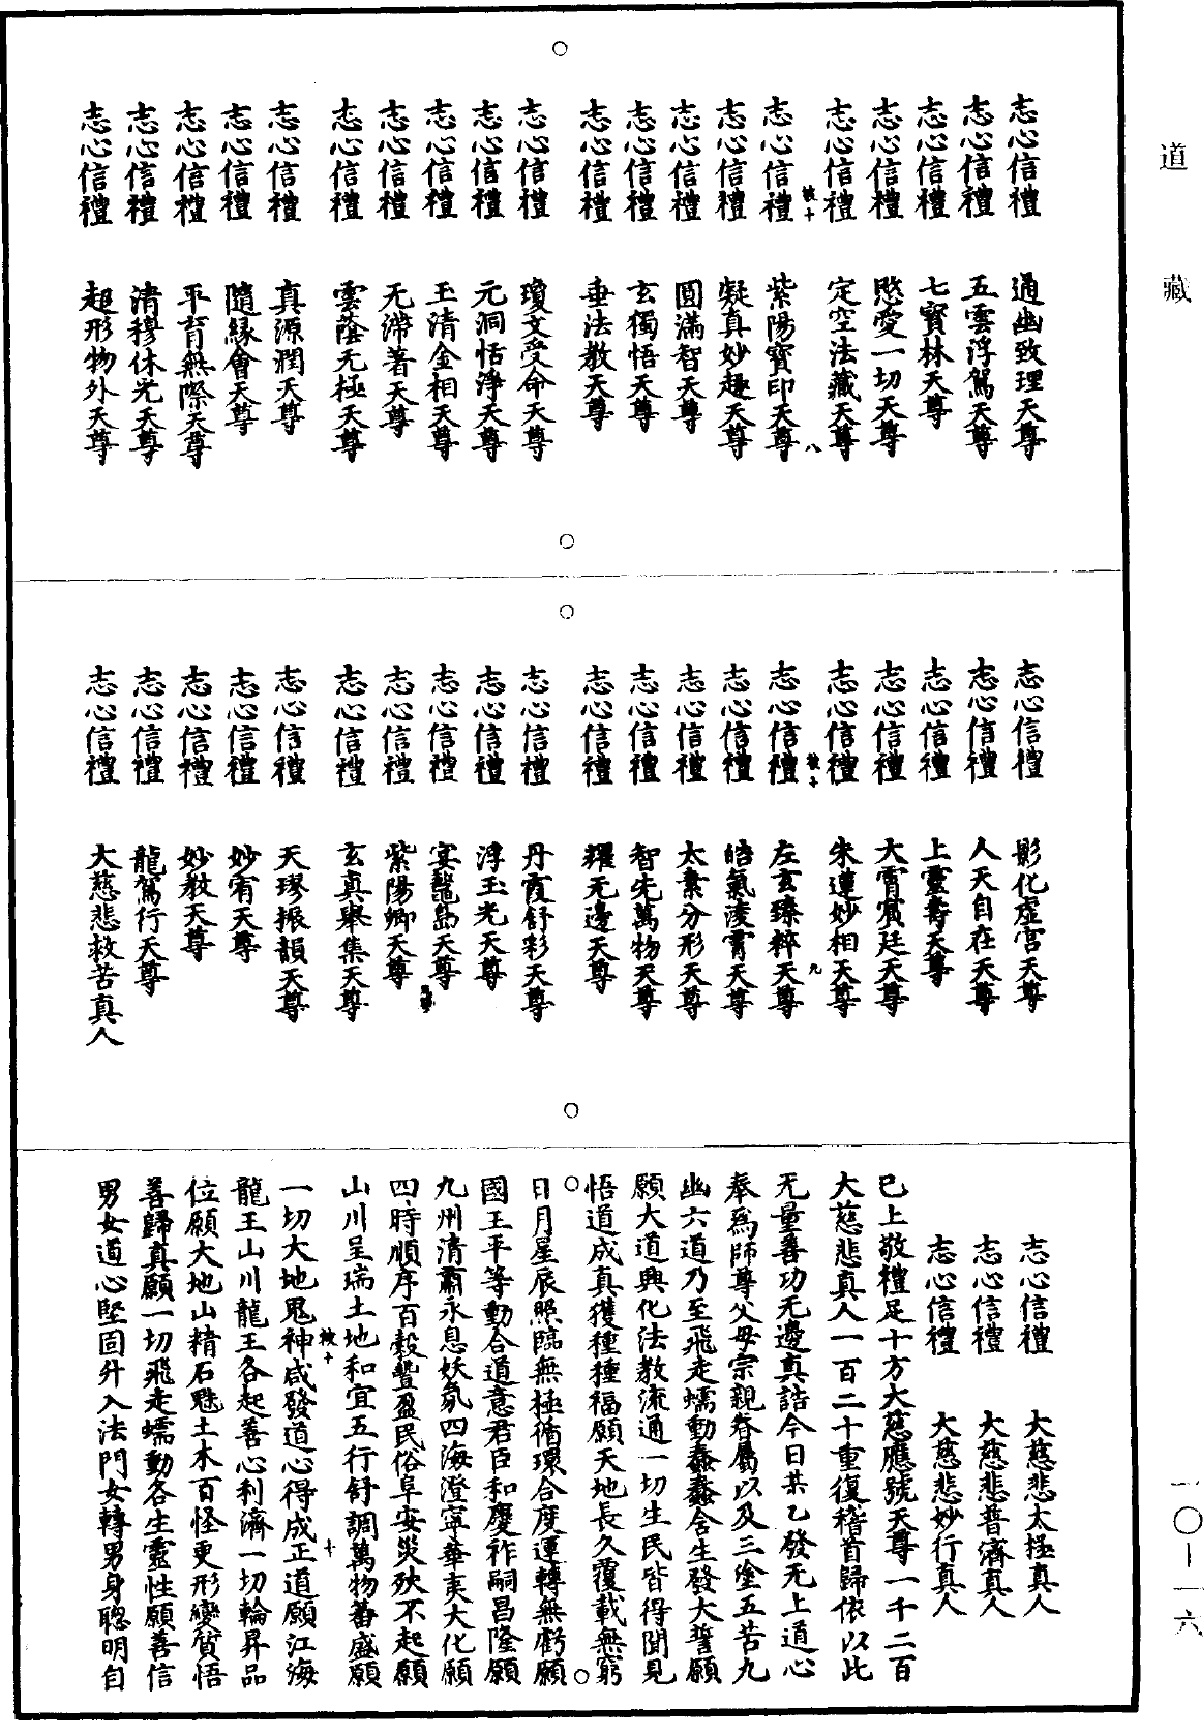 道藏
志心信禮 通幽致理天尊
志心信禮 五雲浮駕天尊
志心信禮 七寶林天尊
志心信禮 愍愛一切天尊
志心信禮 定空法藏天尊
志心信禮 紫陽寶印天尊
志心信禮 凝真妙趣天尊
志心信禮 圓滿智天尊
志心信禮 玄獨悟天尊
志心信禮 垂法教天尊
志心信禮 瓊文受命天尊
志心信禮 元洞恬淨天尊
志心信禮 玉清金相天尊
志心信禮 无滯著天尊
志心信禮 雲蔭无極天尊
志心信禮 真源潤天尊
志心信禮 隨緣會天尊
志心信禮 平育無際天尊
志心信禮 清穆休光天尊
志心信禮 超形物外天尊
志心信禮 影化虛宮天尊
志心信禮 人天自在天尊
志心信禮 上靈壽天尊
志心信禮 大霄賓廷天尊
志心信禮 朱蓮妙相天尊
志心信禮 左玄臻粹天尊
志心信禮 皓氣淩霄天尊
志心信禮 太素分形天尊
志心信禮 智先萬物天尊
志心信禮 耀无邊天尊
志心信禮 丹霞舒彩天尊
志心信禮 浮玉光天尊
志心信禮 宴鼇島天尊
志心信禮 紫陽卿天尊
志心信禮 玄真舉集天尊
志心信禮 天璆振韻天尊
志心信禮 妙宥天尊
志心信禮 妙教天尊
志心信禮 龍駕行天尊
志心信禮 大慈悲救苦真人
志心信禮 大慈悲太極真人
志心信禮 大慈悲普濟真人
志心信禮 大慈悲妙行真人
已上敬禮足十方大慈應號天尊一千二百
大慈悲真人一百二十重復稽首歸依以此
无量善功无邊真誥今日某乙發无上道心
奉為師尊父母宗親眷屬以及三塗五苦九
幽六道乃至飛走蠕動蠢蠢含生發大誓願
願大道興化法教流通一切生民皆得聞見
悟道成真獲種種福願天地長久覆載無窮
日月星辰照臨無極循環合度運轉無虧願
國王平等動合道意君臣和慶祚嗣昌隆願
九州清肅永息妖氛四海澄寧華夷大化願
四時順序百穀豐盈民俗阜安災殃不起願
山川呈瑞土地和宜五行舒調萬物蕃盛願
一切大地鬼神咸發道心得成正道願江海
龍王山川龍王各起善心利濟一切輪昇品
位願大地山精石魅土木百怪更形變質悟
善歸真願一切飛走蠕動各生靈性願善信
男女道心堅固升入法門女轉男身聰明自
一〇-一六